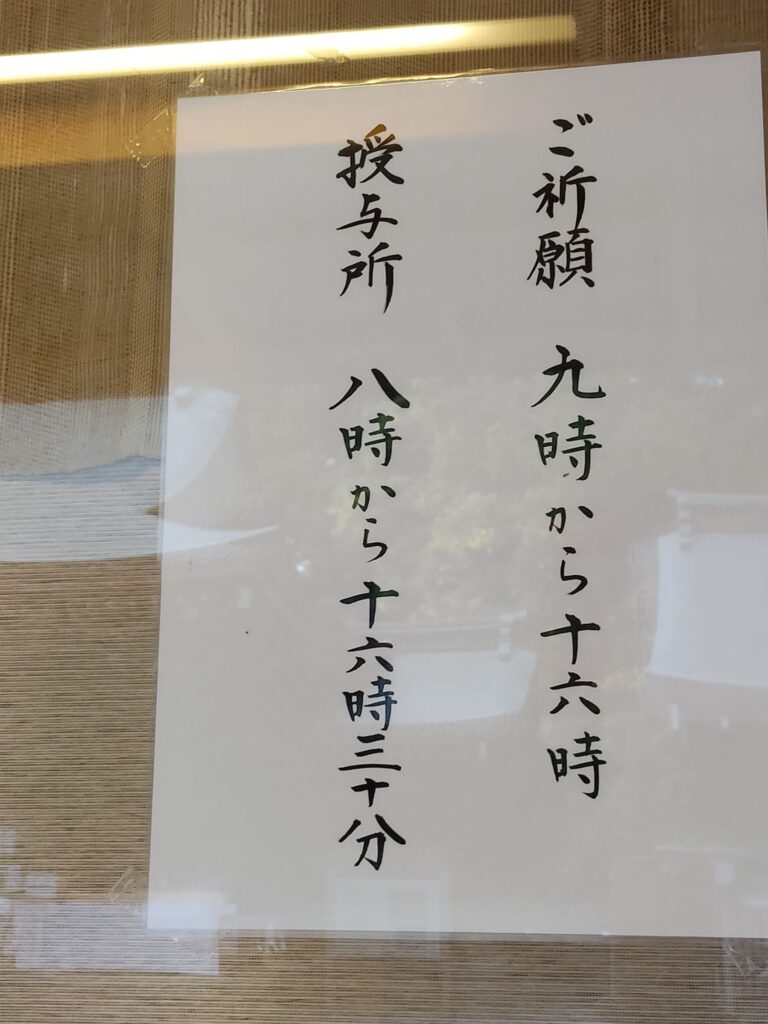 ご祈願 九時から十六時
授与所 八時から十六時三十分